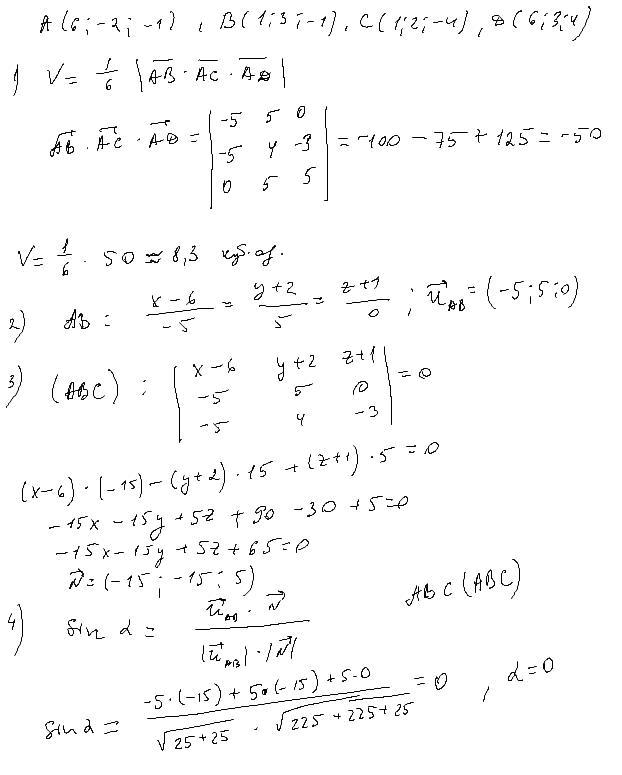 A(6;-2;-1), B(1;3;-1), C(1;2;-4), D(6;3;4)
1) V = 1/6 |AB · AC · AD|
AB · AC · AD = | -5 5 0 | = -100 - 75 + 125 = -50
-5 4 -3
0 5 5
V = 1/6 · 50 ≈ 8,3 куб.ед.
2) AB : (x-6)/-5 = (y+2)/5 = (z+1)/0 ; u_AB = (-5;5;0)
3) (ABC) : | x-6 y+2 z+1 | = 0
-5 5 0
-5 4 -3
(x-6)·(-15) - (y+2)·15 + (z+1)·5 = 0
-15x - 15y + 5z + 90 - 30 + 5 = 0
-15x - 15y + 5z + 65 = 0
N = (-15; -15; 5)
ABC (ABC)
4) sin α = (u_AB · N) / (|u_AB| · |N|)
sin α = (-5·(-15) + 5·(-15) + 5·0) / (√(25+25) · √(225+225+25)) = 0 , α = 0